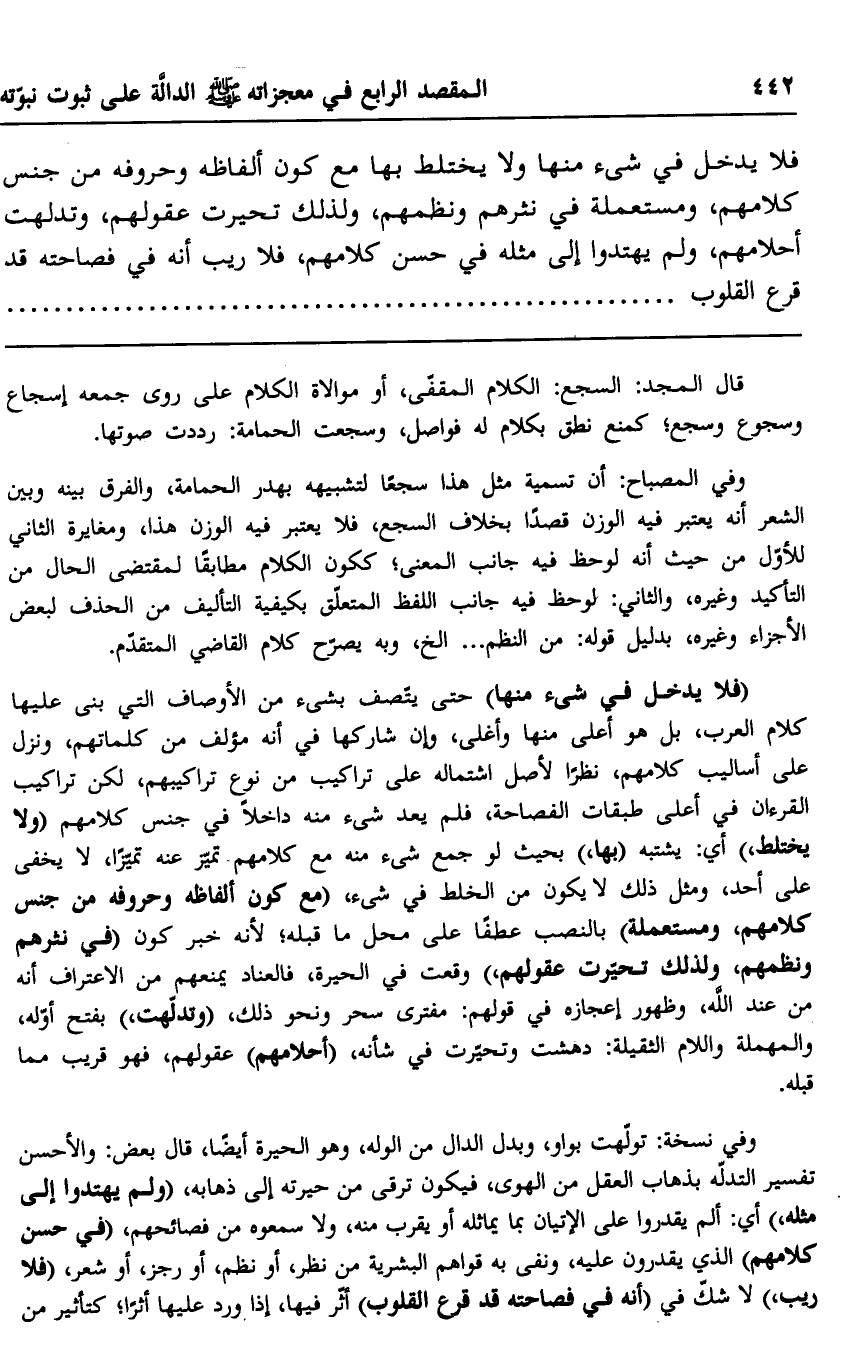 ٤٤٢ المقصد الرابع في معجزاته ﷺ الدالَّة على ثبوت نبوّته
فلا يدخل في شىء منها ولا يختلط بها مع كون ألفاظه وحروفه من جنس
كلامهم، ومستعملة في نثرهم ونظمهم، ولذلك تحيرت عقولهم، وتدلهت
أحلامهم، ولم يهتدوا إلى مثله في حسن كلامهم، فلا ريب أنه في فصاحته قد
قرع القلوب ........................................................
قال المجد: السجع: الكلام المقفّى، أو موالاة الكلام على روى جمعه إسجاع
وسجوع وسجع؛ كمنع نطق بكلام له فواصل، وسجعت الحمامة: رددت صوتها.
وفي المصباح: أن تسمية مثل هذا سجعًا لتشبيهه بهدر الحمامة، والفرق بينه وبين
الشعر أنه يعتبر فيه الوزن قصدًا بخلاف السجع، فلا يعتبر فيه الوزن هذا، ومغايرة الثاني
للأوّل من حيث أنه لوحظ فيه جانب المعنى؛ ككون الكلام مطابقًا لمقتضى الحال من
التأكيد وغيره، والثاني: لوحظ فيه جانب اللفظ المتعلّق بكيفية التأليف من الحذف لبعض
الأجزاء وغيره، بدليل قوله: من النظم... الخ، وبه يصرّح كلام القاضي المتقدّم.
(فلا يدخل في شىء منها) حتى يتّصف بشىء من الأوصاف التي بنى عليها
كلام العرب، بل هو أعلى منها وأغلى، وإن شاركها في أنه مؤلف من كلماتهم، ونزل
على أساليب كلامهم، نظرًا لأصل اشتماله على تراكيب من نوع تراكيبهم، لكن تراكيب
القرءان في أعلى طبقات الفصاحة، فلم يعد شىء منه داخلاً في جنس كلامهم (ولا
يختلط،) أي: يشتبه (بها،) بحيث لو جمع شىء منه مع كلامهم تميّز عنه تميّزًا، لا يخفى
على أحد، ومثل ذلك لا يكون من الخلط في شىء، (مع كون ألفاظه وحروفه من جنس
كلامهم، ومستعملة) بالنصب عطفًا على محل ما قبله؛ لأنه خبر كون (في نثرهم
ونظمهم، ولذلك تحيّرت عقولهم،) وقعت في الحيرة، فالعناد يمنعهم من الاعتراف أنه
من عند اللَّه، وظهور إعجازه في قولهم: مفترى سحر ونحو ذلك، (وتدلّهت،) بفتح أوّله،
والمهملة واللام الثقيلة: دهشت وتحيّرت في شأنه، (أحلامهم) عقولهم، فهو قريب مما
قبله.
وفي نسخة: تولّهت بواو، وبدل الدال من الوله، وهو الحيرة أيضًا، قال بعض: والأحسن
تفسير التدلّه بذهاب العقل من الهوى، فيكون ترقى من حيرته إلى ذهابه، (ولم يهتدوا إلى
مثله،) أي: ألم يقدروا على الإتيان بما يماثله أو يقرب منه، ولا سمعوه من فصائحهم، (في حسن
كلامهم) الذي يقدرون عليه، ونفى به قواهم البشرية من نظر، أو نظم، أو رجز، أو شعر، (فلا
ريب،) لا شكّ في (أنه في فصاحته قد قرع القلوب) أثّر فيها، إذا ورد عليها أثرًا؛ كتأثير من